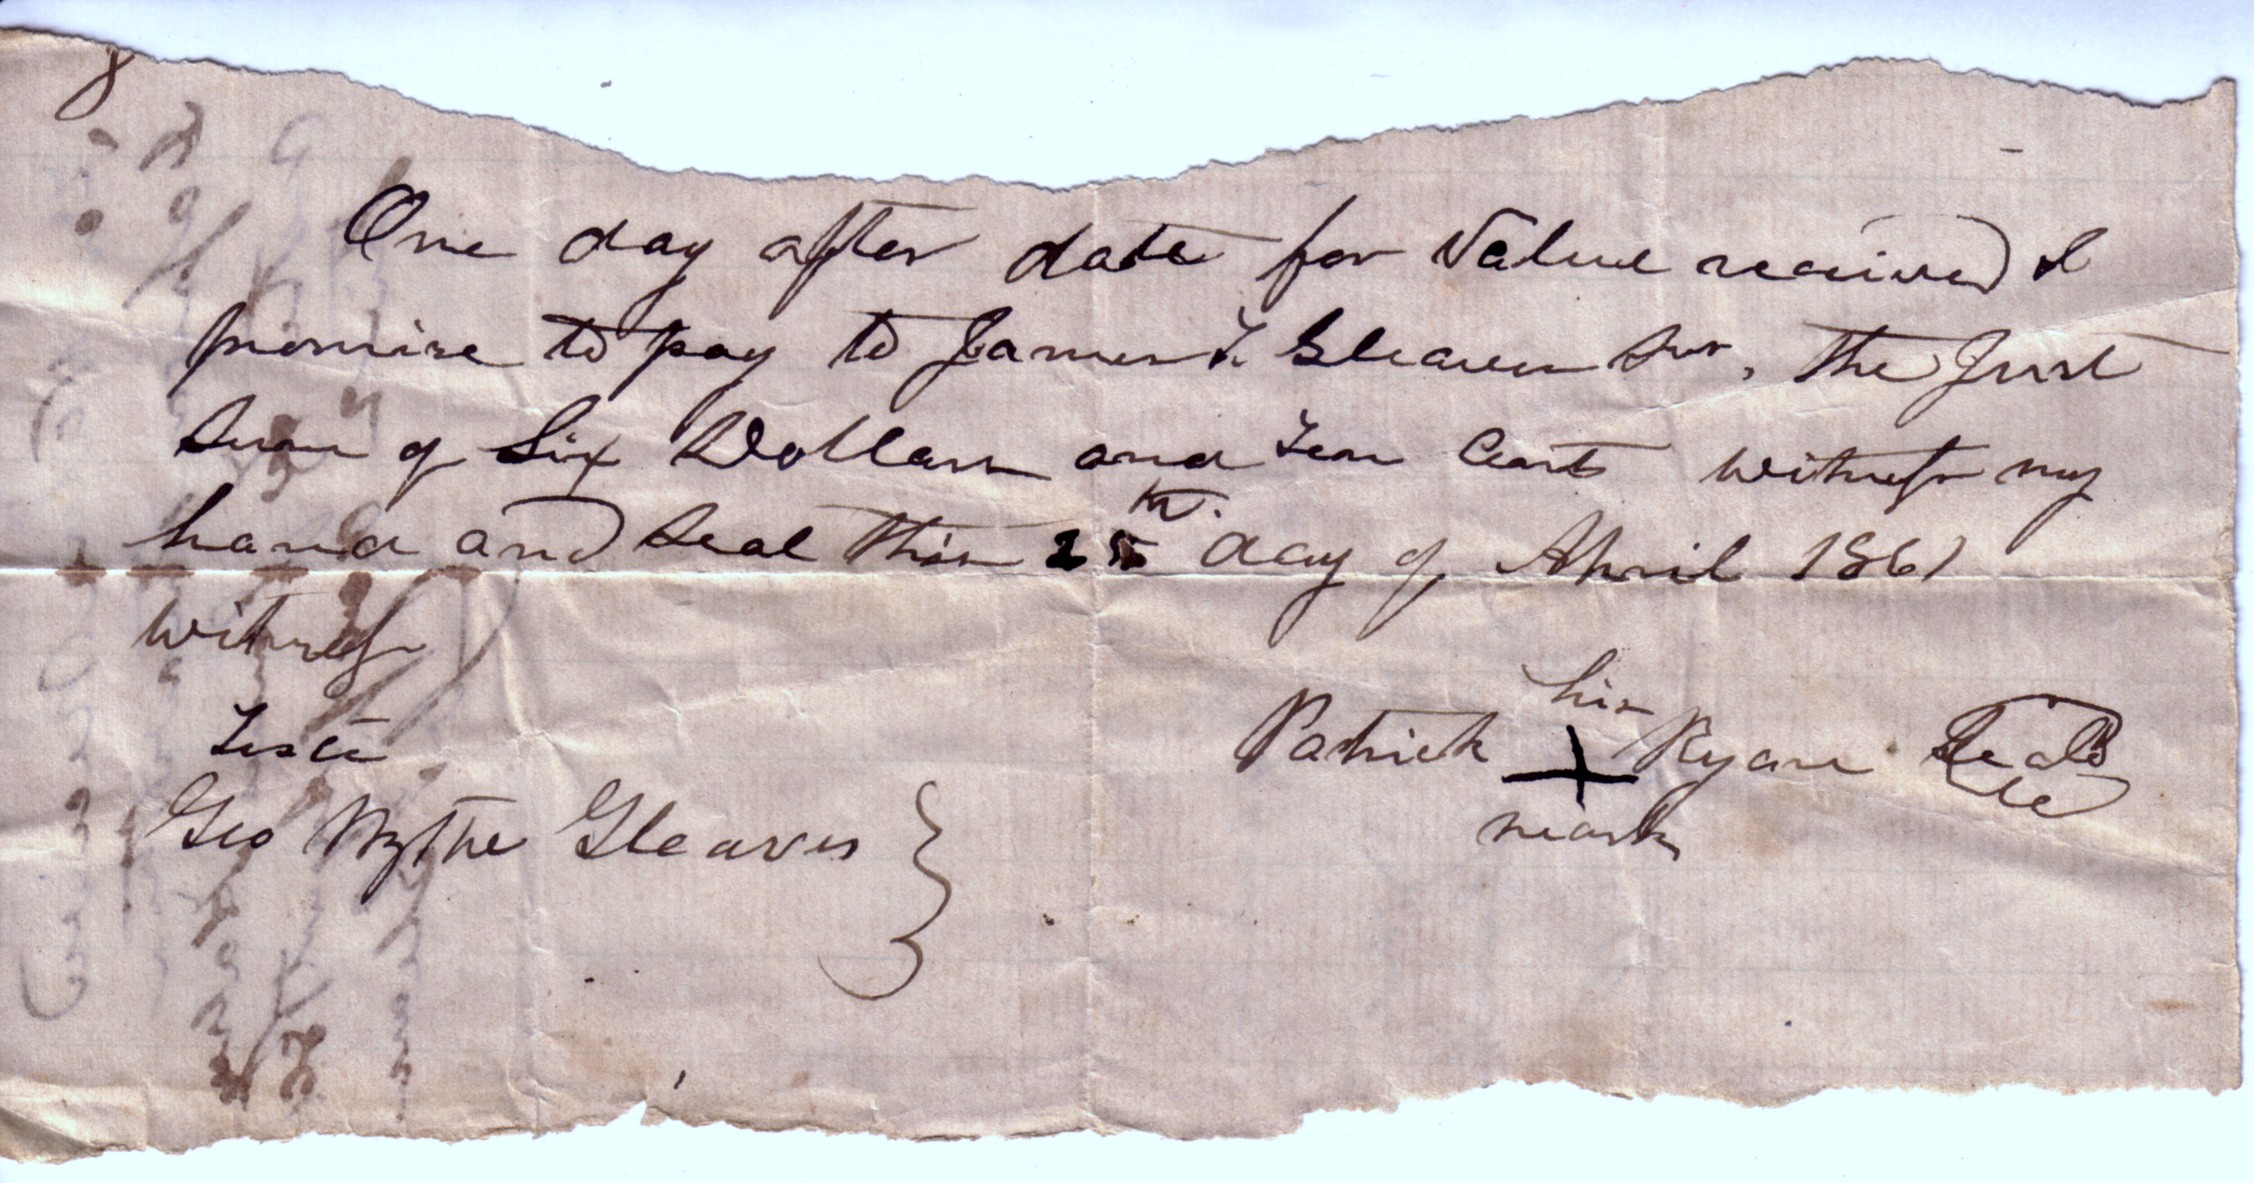 One day after date for Value received I
promise to pay to James T. Gleaves Snr, the Just
Sum of Six Dollars and Ten Cents witness my
hand and Seal this 25th. day of April 1861
witness
Teste
Geo Wythe Gleaves
his
Patrick + Ryan Seal
mark